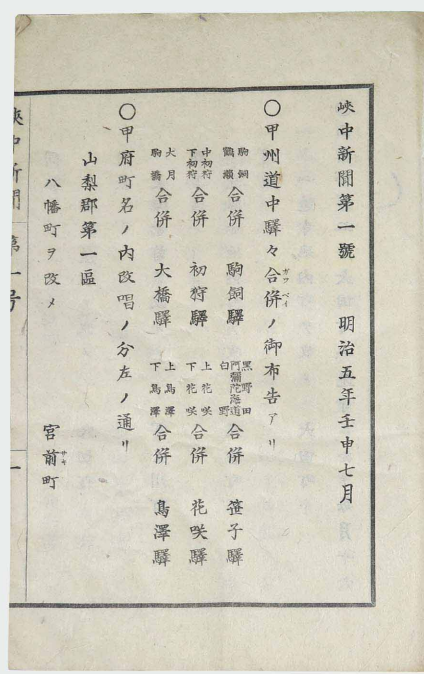 峽中新聞第一號 明治五年壬申七月
〇甲州道中驛々合併ノ御布告アリ
ガツペイ
駒飼
鶴瀨
合併 駒飼驛
黑野田
阿彌陀海道
白野
合併 笹子驛
中初狩
下初狩
合併 初狩驛
上花咲
下花咲
合併 花咲驛
大月
駒橋
合併 大橋驛
上鳥澤
下鳥澤
合併 鳥澤驛
〇甲府町名ノ內改唱ノ分左ノ通リ
山梨郡第一區
八幡町ヲ改メ 宮前町
サキ
峽中新聞 第一号 一